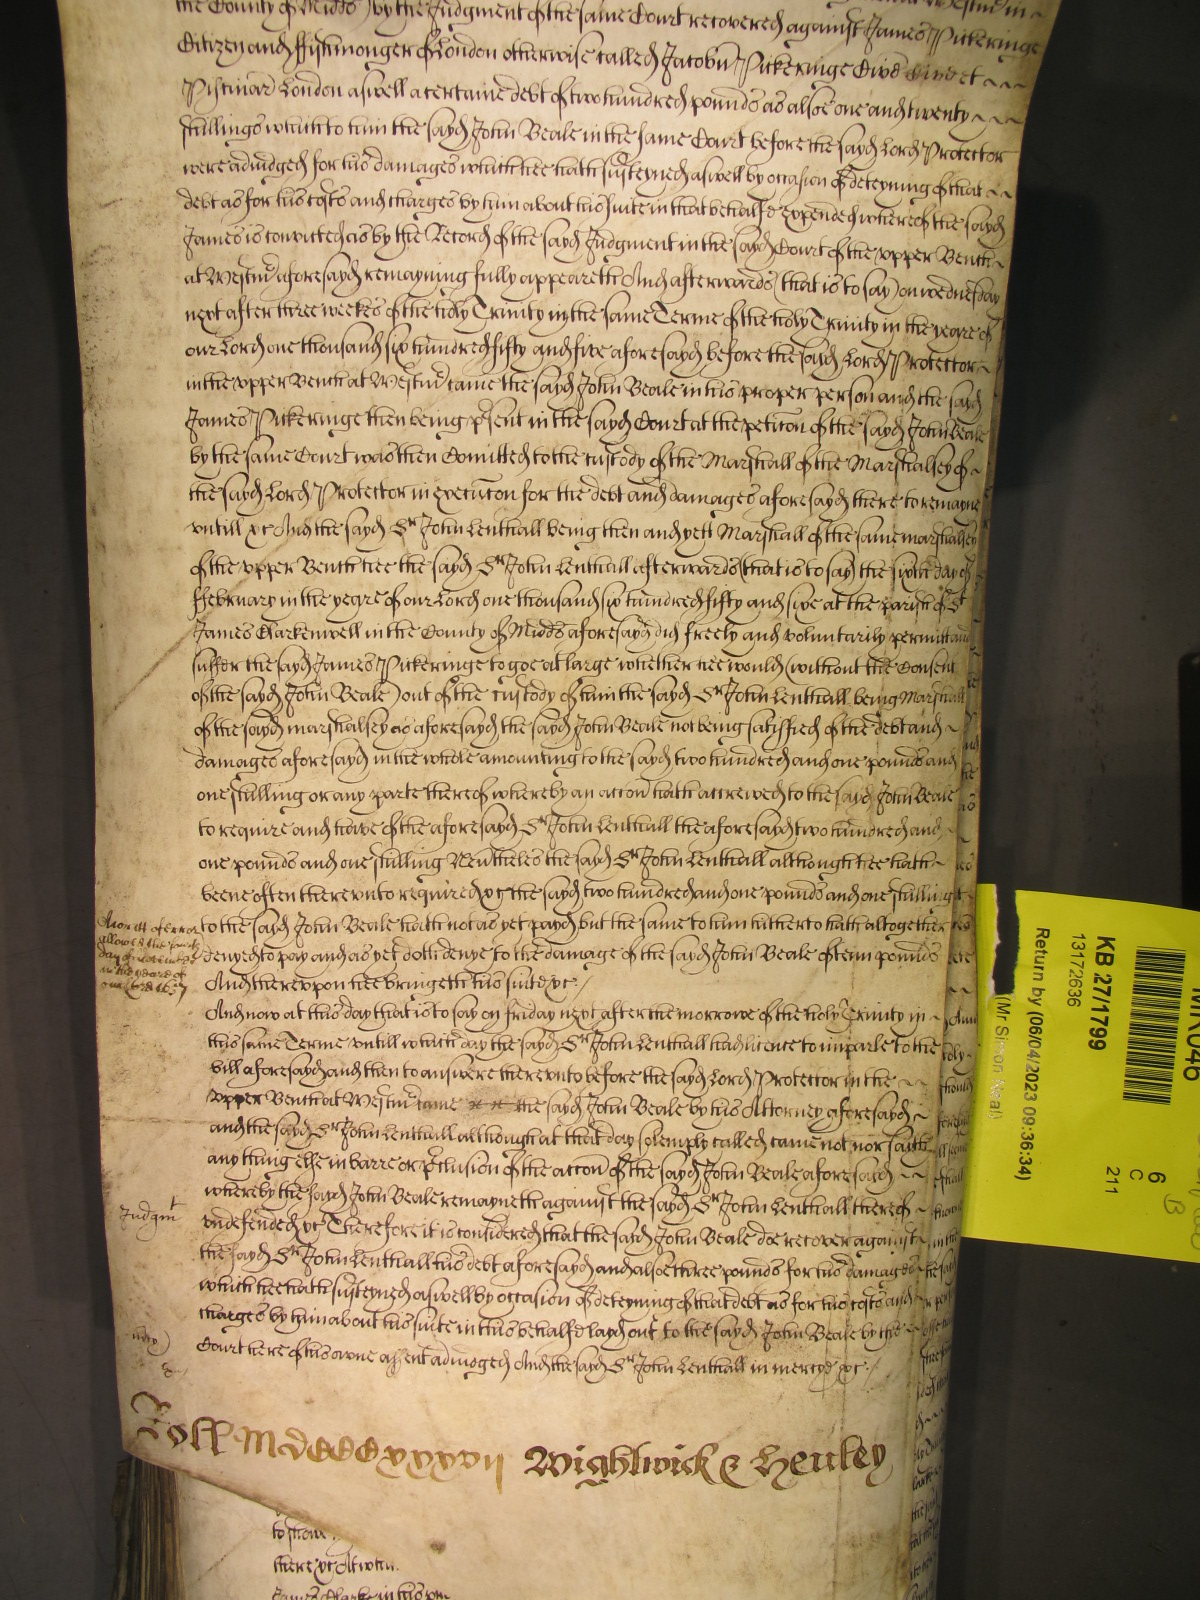 the County of Midds) by the Judgment of the same Court recovered against James Pickeringe
Citizen and ffishmonger of London otherwise called Jacobu Pickeringe Civē et
Pistinar London aswell a certaine debt of two hundred pounds as alsoe one and twenty
shillings which to him the sayd John Beale in the same Court before the sayd Lord Protector
were adiudged for his damages which hee hath susteyned aswell by occasion of deteyning of that
debt as for his costs and charges by him about his suite in that behalfe expended whereof the sayd
James is convicted as by the Record of the sayd Judgment in the sayd Court of the vpper Bench
at Westmr aforesayd remayning fully appeareth And afterwards (that is to say) on wednesday
next after three weekes of the holy Trinity in the same Terme of the holy Trinity in the yeare of
our Lord one thousand six hundred fifty and five aforesayd before the sayd Lord Protector
in the vpper Bench at Westmr came the sayd John Beale in his proper person and the sayd
James Pickeringe then being psent in the sayd Court at the peticon of the sayd John Beale
by the same Court was then Comitted to the custody of the Marshall of the Marshalsey of
the sayd Lord Protector in execucon for the debt and damages aforesayd there to remayne
vntill &c And the sayd Sr John Lenthall being then and yett Marshall of the same marshalsey
of the vpper Bench hee the sayd Sr John Lenthall afterwards (that is to say) the sixth day of
ffebruary in the yeare of our Lord one thousand six hundred fifty and six at the parish of St
James Clarkenwell in the County of Midds aforesayd did freely and voluntarily permitt and
suffer the sayd James Pickeringe to goe at large whether hee would (without the Consent
of the sayd John Beale) out of the custody of him the sayd Sr John Lenthall being Marshall
of the sayd marshalsey as aforesayd the sayd John Beale not being satisfied of the debt and
damages aforesayd in the whole amounting to the sayd two hundred and one pounds and
one shilling or any parte thereof whereby an accon hath accrewed to the sayd John Beale
to require and have of the aforesayd Sr John Lenthall the aforesayd two hundred and
one pounds and one shilling Neutheles the sayd Sr John Lenthall although hee hath
beene often therevnto required &c the sayd two hundred and one pounds and one shilling
to the sayd John Beale hath not as yet payd but the same to him hitherto hath altogether
denyed to pay and as yet doth denye to the damage of the sayd John Beale of tenn pounds
And therevpon hee bringeth his suite &c
A writt of error
allowed the
day of November
in the yeare of
our Lord 1657
And now at this day that is to say on friday next after the morrowe of the holy Trinity in
this same Terme vntill which day the sayd Sr John Lenthall had licence to imparle to the
bill aforesayd and then to answere therevnto before the sayd Lord Protector in the
vpper Bench at Westmr came the sayd John Beale by his Attorney aforesayd
and the sayd Sr John Lenthall although at that day solemply called came not nor sayth
any thing else in barre or pclusion of the accon of the sayd John Beale aforesayd
whereby the sayd John Beale remayneth against the sayd Sr John Lenthall thereof
Judgmt
vndefended &c Therefore it is considered that the sayd John Beale doe recover against
the sayd Sr John Lenthall his debt aforesayd and alsoe three pounds for his damages
which hee hath susteyned aswell by occasion of deteyning of that debt as for his costs and
charges by him about his suite in this behalfe layd out to the sayd John Beale by the
Court here of his owne assent adiudged And the sayd Sr John Lenthall in mercye &c
Roll MDCCCxxxvij Wightwick & Henley
to
there &c At which
James Clarke in his
KB 27/1799
13172636
Return by (06/04/2023 09:36:34)
(Mr Simon Neal)
6
C
211